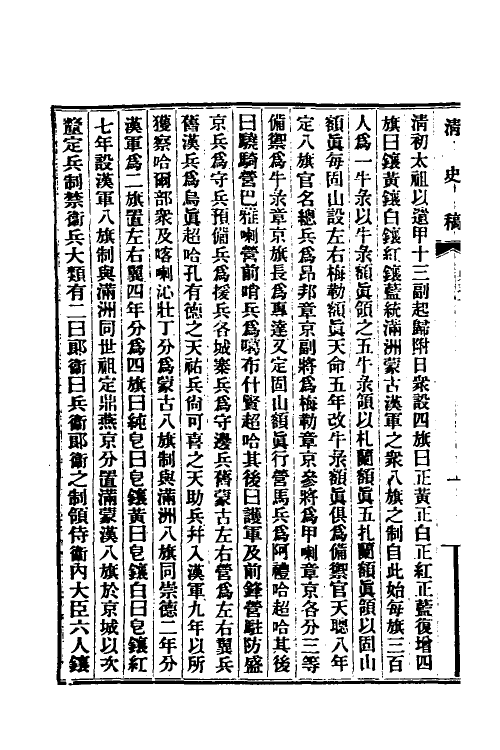 清史稿
清初太祖以遺甲十三副起歸附日衆設四旗曰正黃正白正紅正藍復增四
旗曰鑲黃鑲白鑲紅鑲藍統滿洲蒙古漢軍之衆八旗之制自此始每旗三百
人爲一牛彔以牛彔額眞領之五牛彔領以札蘭額眞五札蘭額眞領以固山
額眞每固山設左右梅勒額眞天命五年改牛彔額眞俱爲備禦官天聰八年
定八旗官名總兵爲昂邦章京副將爲梅勒章京參將爲甲喇章京各分三等
備禦爲牛彔章京旗長爲專達又定固山額眞行營馬兵爲阿禮哈超哈其後
曰驍騎營巴雅喇營前哨兵爲噶布什賢超哈其後曰護軍及前鋒營駐防盛
京兵爲守兵預備兵爲援兵各城寨兵爲守邊兵舊蒙古左右營爲左右翼兵
舊漢兵爲烏眞超哈孔有德之天祐兵尙可喜之天助兵幷入漢軍九年以所
獲察哈爾部衆及喀喇沁壯丁分爲蒙古八旗制與滿洲八旗同崇德二年分
漢軍爲二旗置左右翼四年分爲四旗曰純皂曰皂鑲黃曰皂鑲白曰皂鑲紅
七年設漢軍八旗制與滿洲同世祖定鼎燕京分置滿蒙漢八旗於京城以次
釐定兵制禁衞兵大類有二曰郞衞曰兵衞郞衞之制領侍衞內大臣六人鑲